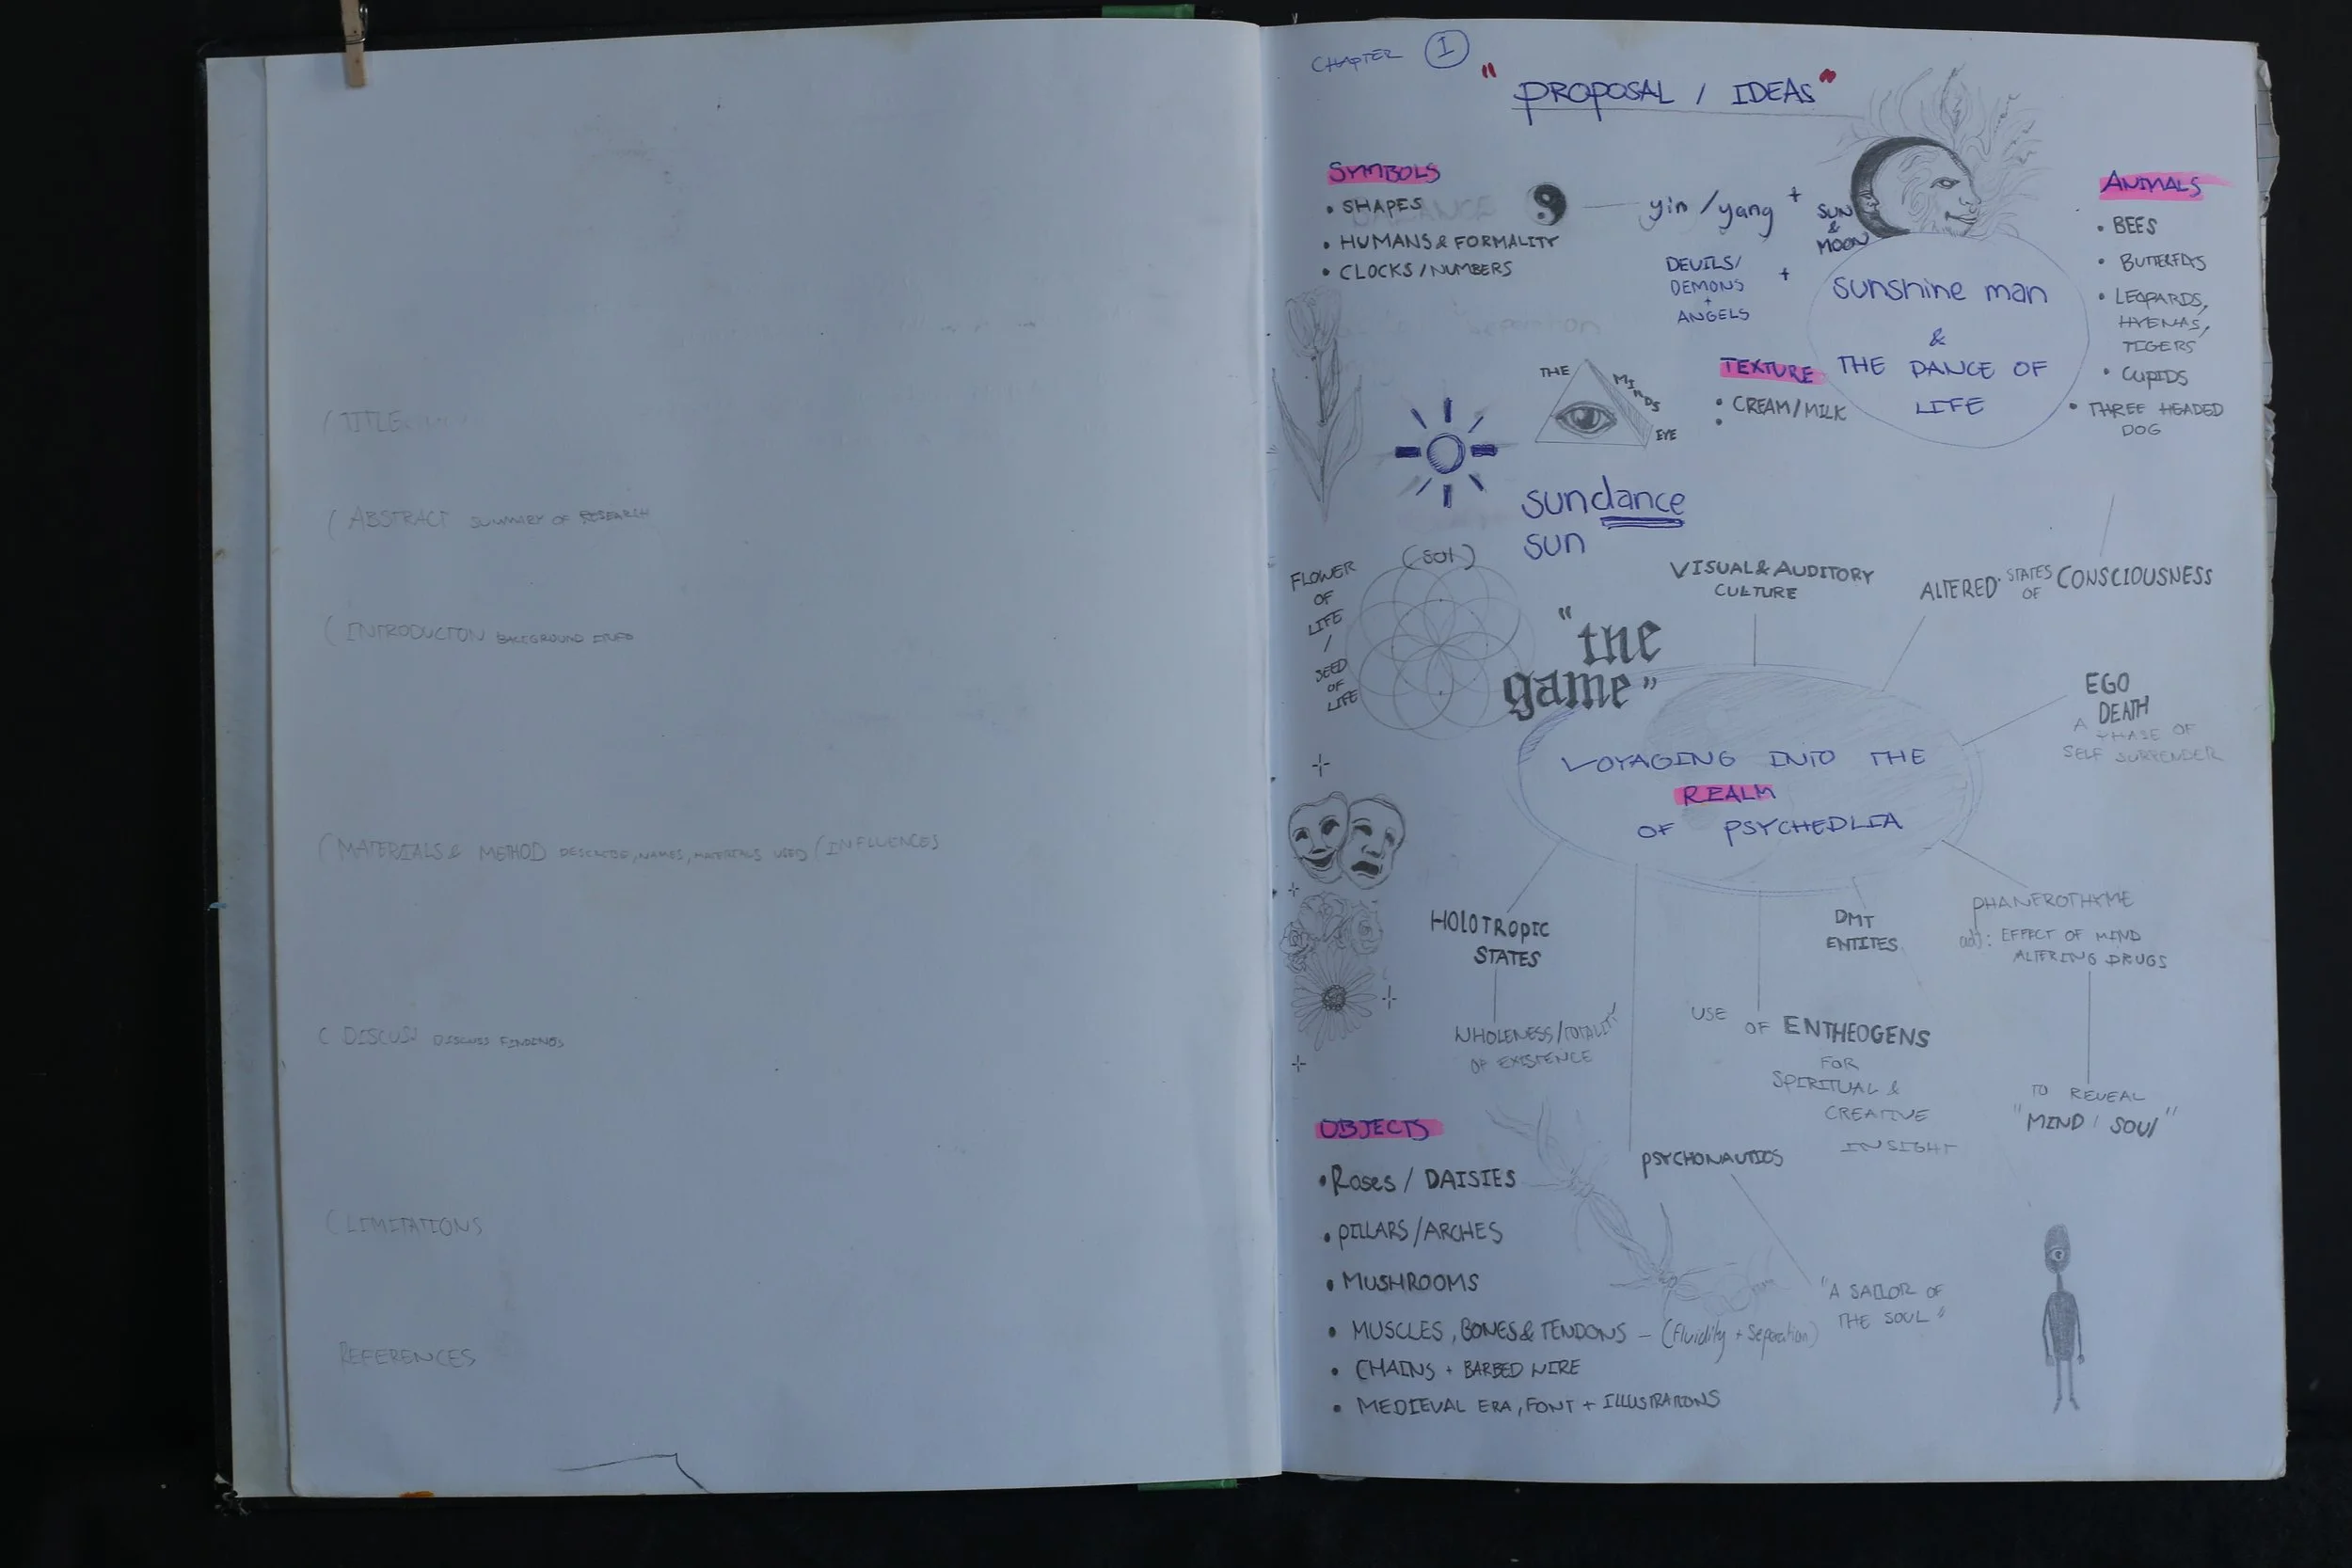 ( TITLE
( ABSTRACT SUMMARY OF RESEARCH
( INTRODUCTON BACKGROUND INFO
( MATERIALS & METHOD DESCRIBE, NAMES, MATERIALS USED ( INFLUENCES
( DISCUSS DISCUSS FINDINGS
( LIMITATIONS
REFERENCES
CHAPTER 1
"PROPOSAL / IDEAS"
SYMBOLS
• SHAPES
• HUMANS & FORMALITY
• CLOCKS / NUMBERS
yin / yang +
SUN
&
MOON
DEVILS/
DEMONS +
+
ANGELS
sunshine man
&
THE DANCE OF
LIFE
ANIMALS
• BEES
• BUTTERFLYS
• LEOPARDS,
HYENAS,
TIGERS
• CUPIDS
• THREE HEADED
DOG
THE MINDS EYE
TEXTURE
• CREAM/MILK
•
sundance
sun
(sol)
FLOWER
OF
LIFE
/
SEED
OF
LIFE
"the
game"
VISUAL & AUDITORY
CULTURE
ALTERED STATES OF CONSCIOUSNESS
EGO
DEATH
A PHASE OF
SELF SURRENDER
VOYAGING INTO THE
REALM
OF PSYCHEDLIA
HOLOTROPIC
STATES
WHOLENESS/TOTALITY
OF EXISTENCE
DMT
ENTITES
PHANEROTHYME
adj: EFFECT OF MIND
ALTERING DRUGS
TO REVEAL
"MIND / SOUL"
USE OF ENTHEOGENS
FOR
SPIRITUAL &
CREATIVE
INSIGHT
PSYCHONAUTICS
"A SAILOR OF
THE SOUL"
OBJECTS
• Roses / DAISIES
• PILLARS / ARCHES
• MUSHROOMS
• MUSCLES, BONES & TENDONS — (Fluidity + Separation)
• CHAINS + BARBED WIRE
• MEDIEVAL ERA, FONT + ILLUSTRATIONS